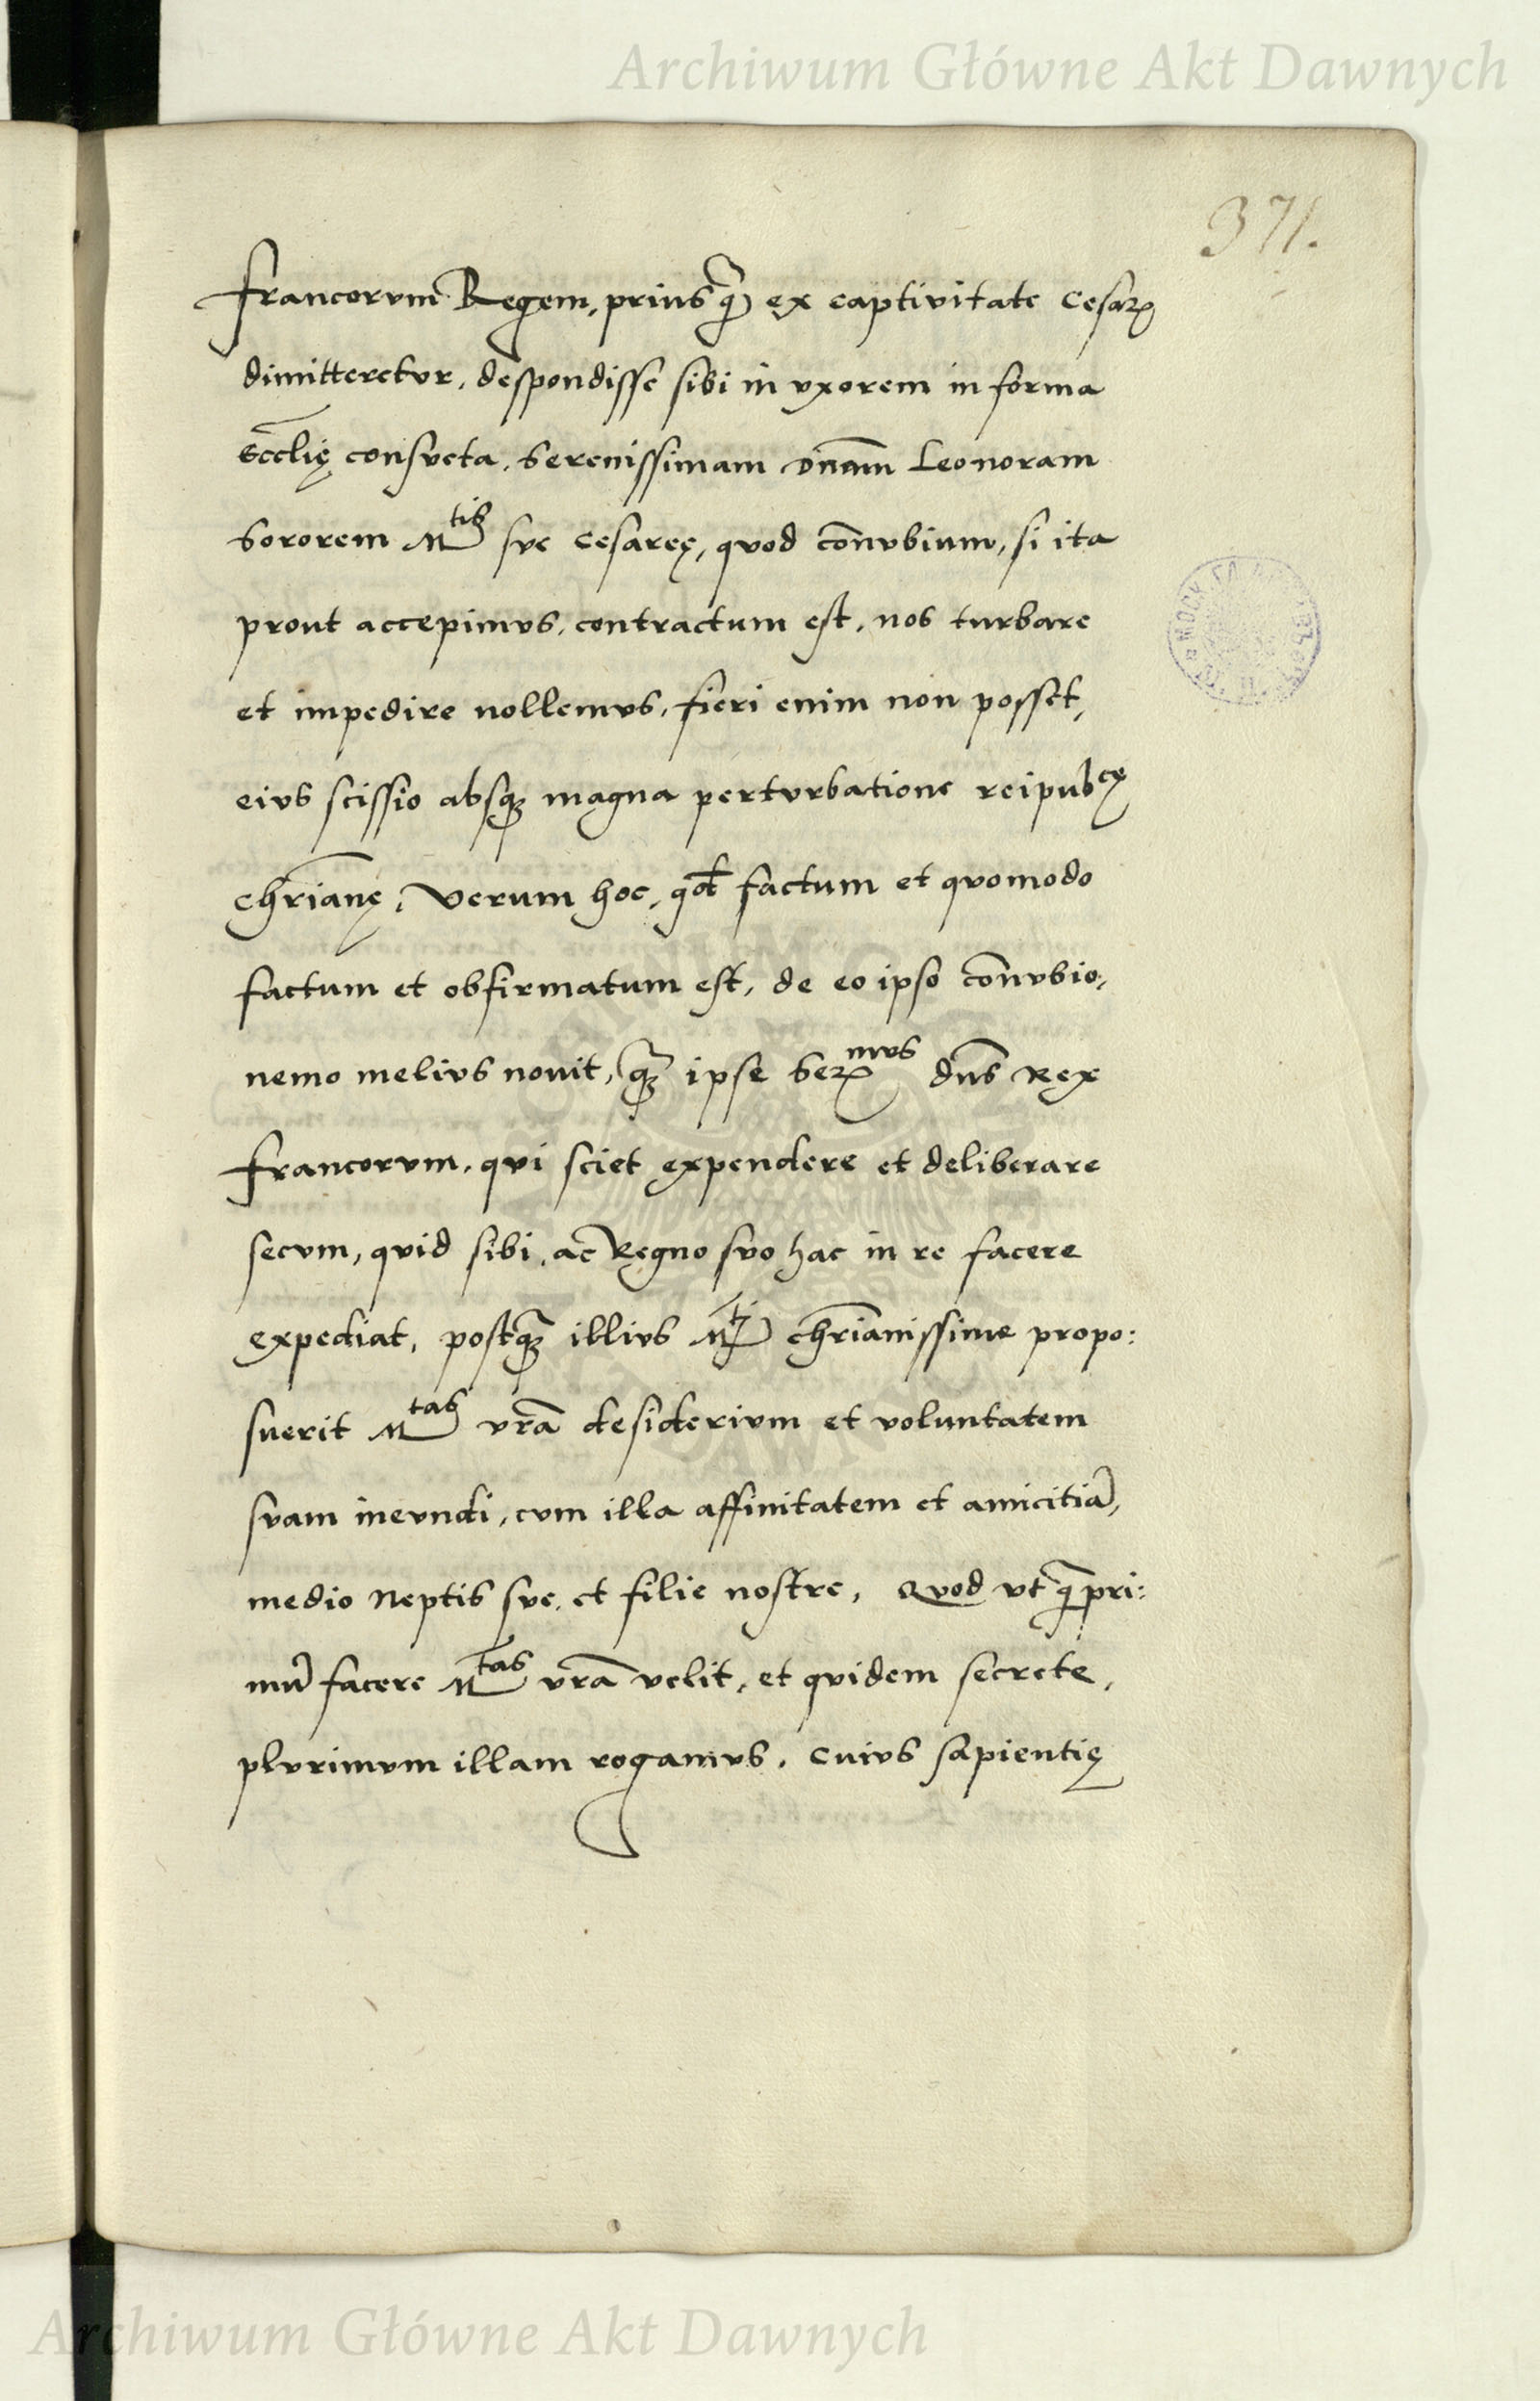 Archiwum Główne Akt Dawnych
371.
francorvm Regem, prius q̃ ex captivitate Cesar
dimitteretvr, despondisse sibi in vxorem in forma
Eccłię consveta, Serenissimam Dnãm Leonoram
Sororem Mtis sve Cesareę, qvod coñvbium, si ita
prout accepimvs, contractum est, nos turbare
et impedire nollemvs, fieri enim non posset,
eivs scissio absq magna pertvrbatione reipubcę
Chrianę, Verum hoc, qđ factum et qvomodo
factum et obfirmatum est, de eo ipso coñvbio,
nemo melivs novit, q̃ ipse Sermvs dñs Rex
francorvm, qvi sciet expendere et deliberare
secvm, qvid sibi, ac Regno svo hac in re facere
expediat, postq̃ illivs Mti chrianissime propo:
suerit Mtas vrã desiderivm et voluntatem
svam inevndi, cvm illa affinitatem et amicitiã,
medio Neptis sve, et filie nostre, Qvod vt q̃pri:
mũ facere Mtas vrã velit, et qvidem secrete,
plvrimvm illam rogamvs, Cvivs sapientię
Archiwum Główne Akt Dawnych